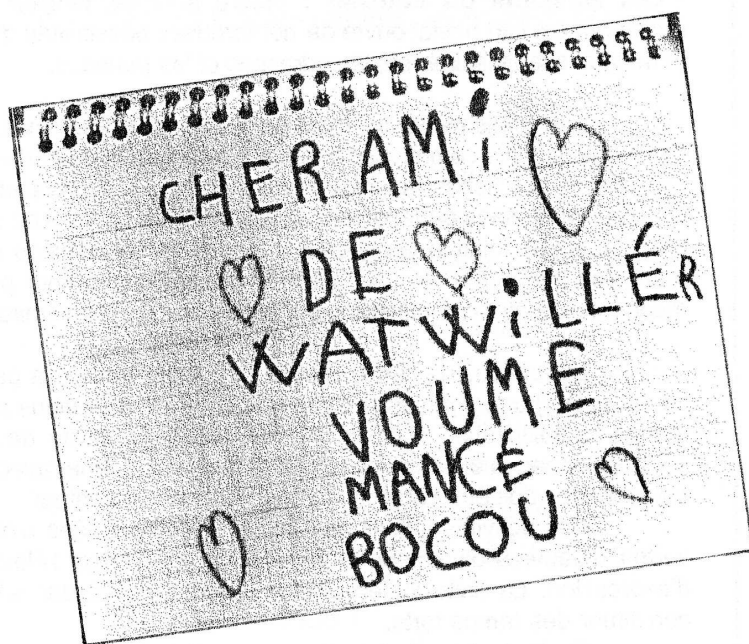 CHER AMi
DE
WATWiLLÉR
VOUME
MANCÉ
BOCOU